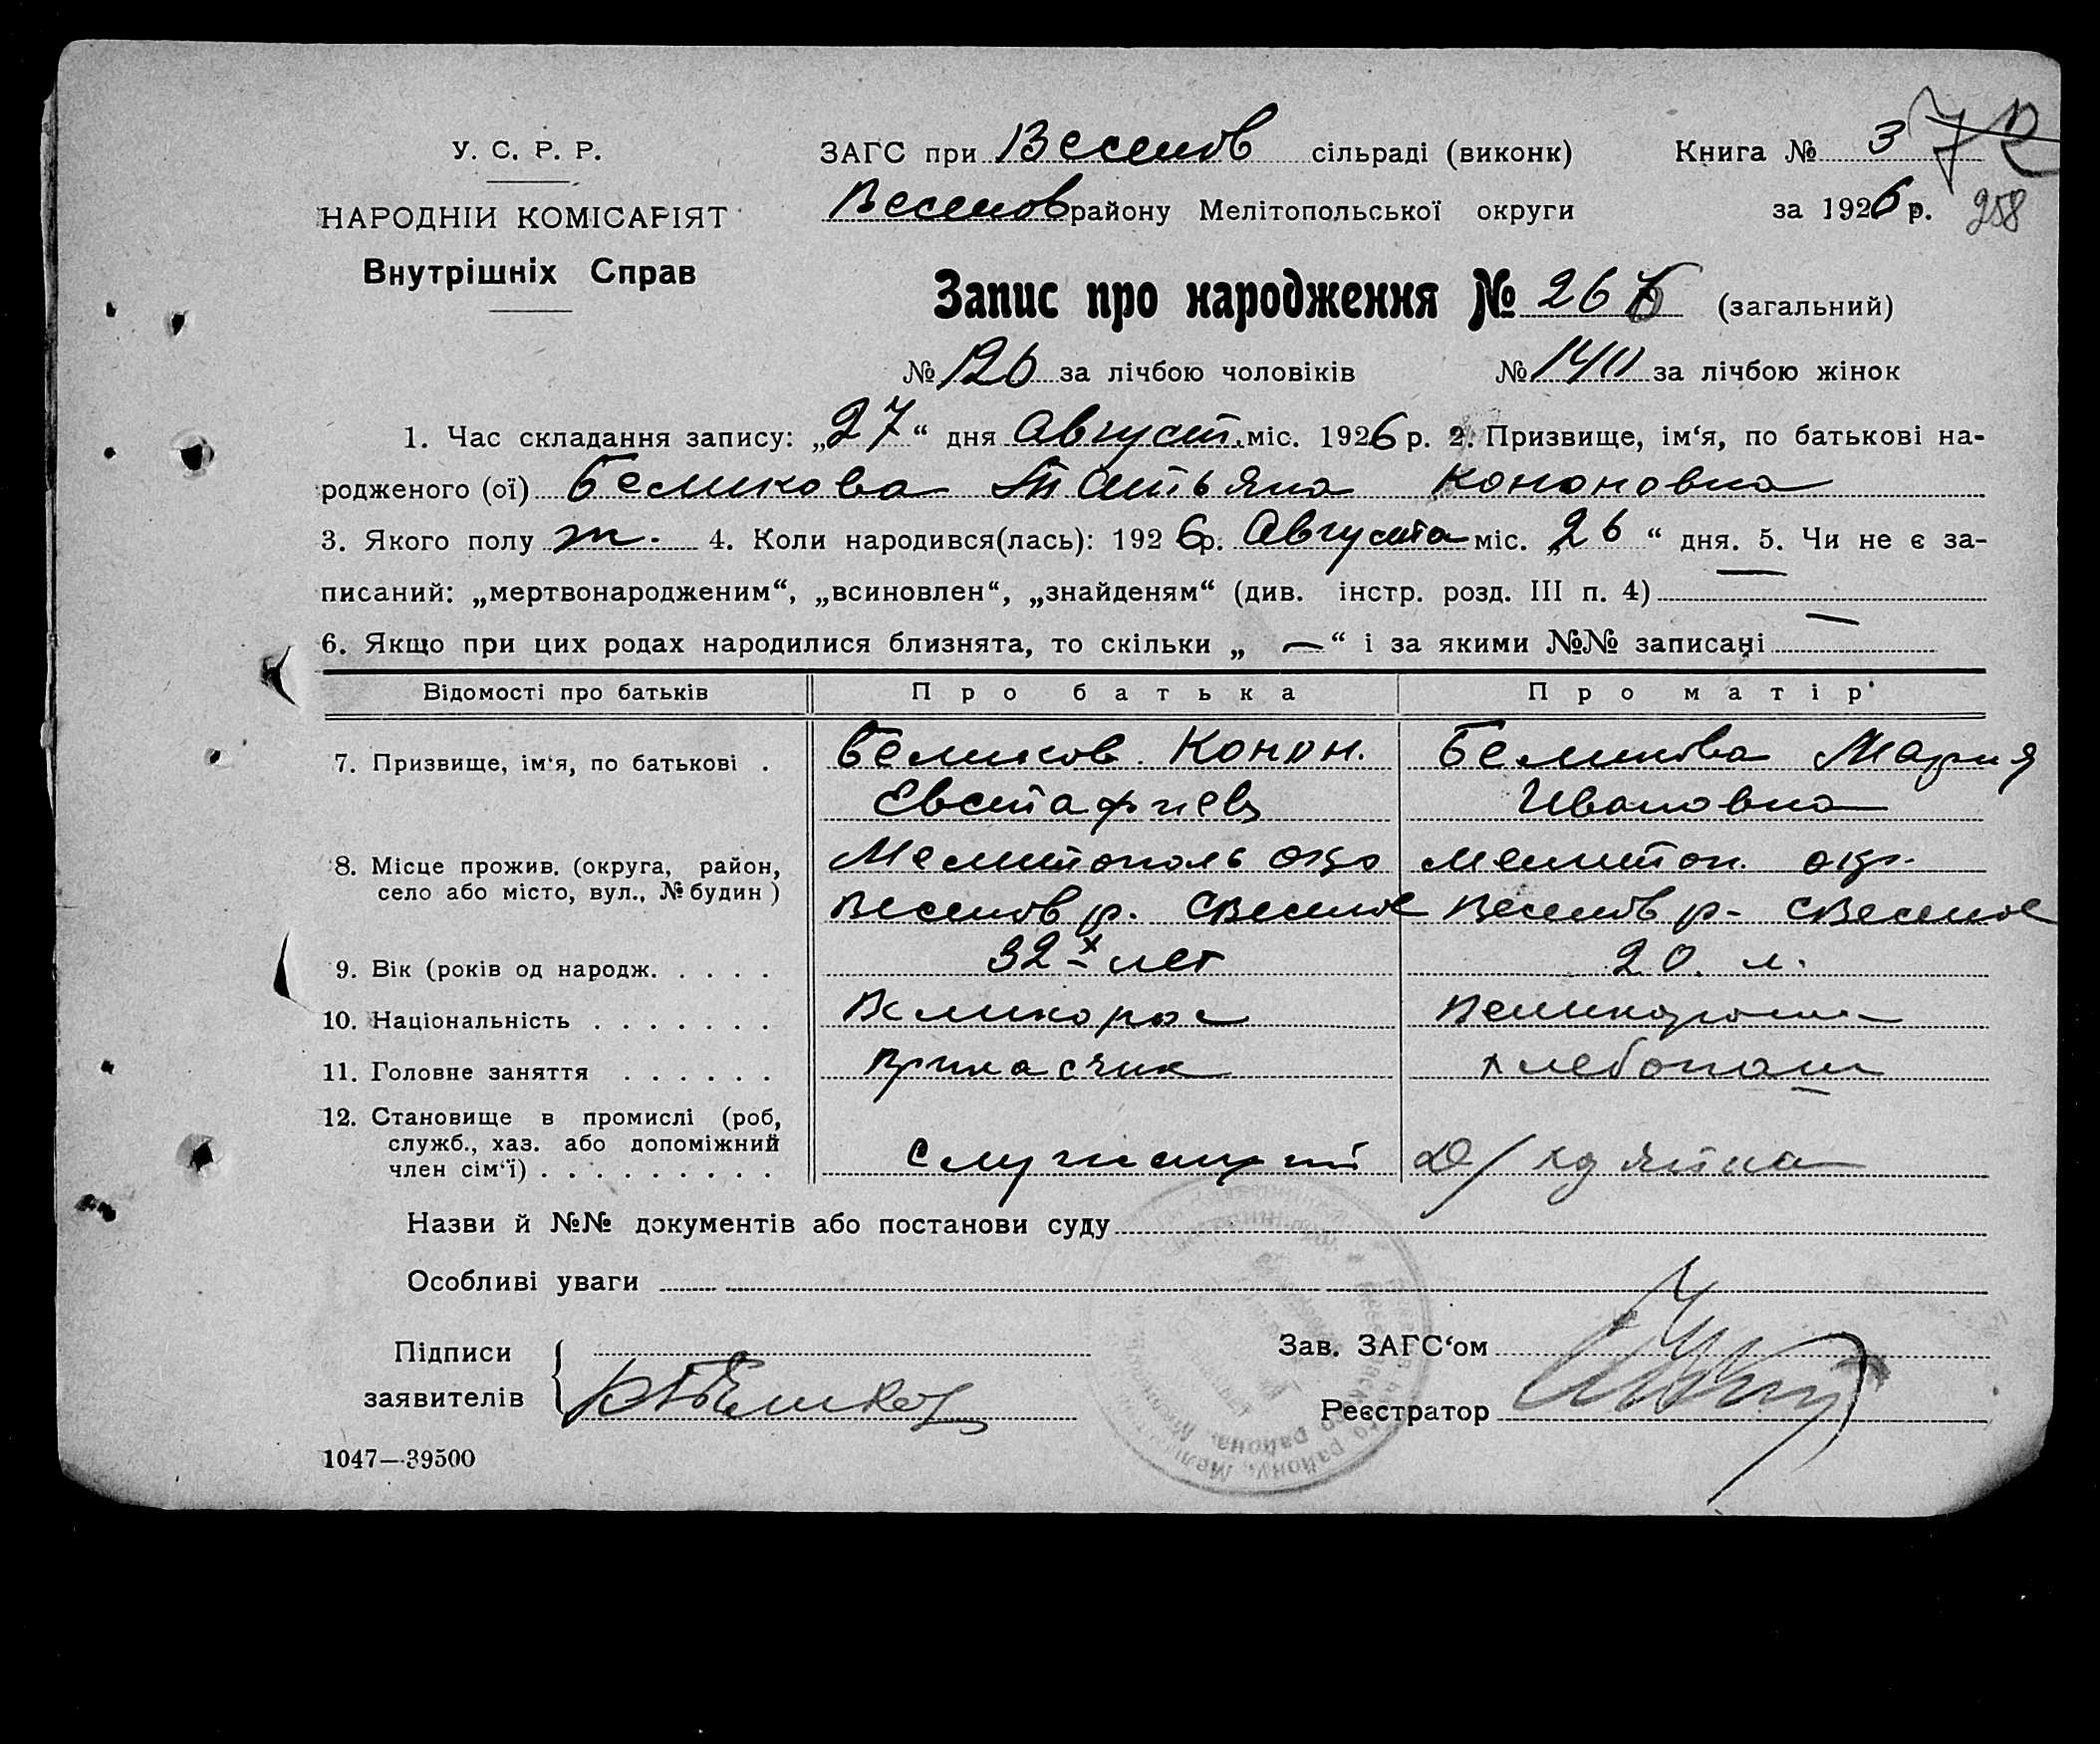 У. С. Р. Р.
НАРОДНІЙ КОМІСАРІЯТ
Внутрішніх Справ
ЗАГС при Веселов сільраді (виконк) Книга № 3
Веселов району Мелітопольської округи за 1926 р. 258
Запис про народження № 266 (загальний)
№ 126 за лічбою чоловіків № 140 за лічбою жінок
1. Час складання запису: „27“ дня Август. міс. 1926 р. 2. Призвище, ім‘я, по батькові на-
родженого (ої) Беликова Татьяна Кононовна
3. Якого полу ж. 4. Коли народився(лась): 1926 р. Августа міс. „26“ дня. 5. Чи не є за-
писаний: „мертвонародженим“, „всиновлен“, „знайденям“ (див. інстр. розд. III п. 4) —
6. Якщо при цих родах народилися близнята, то скільки „ — “ і за якими №№ записані —
Відомості про батьків Про батька Про матір
7. Призвище, ім‘я, по батькові . Беликов Конон. Беликова Мария
Евстафиев Ивановна
8. Місце прожив. (округа, район, Мелитополь окр Мелитоп. окр.
село або місто, вул., № будин ) Веселов р. с Веселое Веселов р- с Веселое
9. Вік (років од народж. . . . . 32х лет 20. л.
10. Національність . . . . . . . Великорос Великоросс
11. Головне заняття . . . . . . Приказчик хлебопаш
12. Становище в промислі (роб,
служб., хаз. або допоміжний
член сім‘ї) . . . . . . . . . служащий Д/хозяйка
Назви й №№ документів або постанови суду
Особливі уваги
Підписи
заявителів К Беликов
Зав. ЗАГС‘ом
Реєстратор
1047—39500